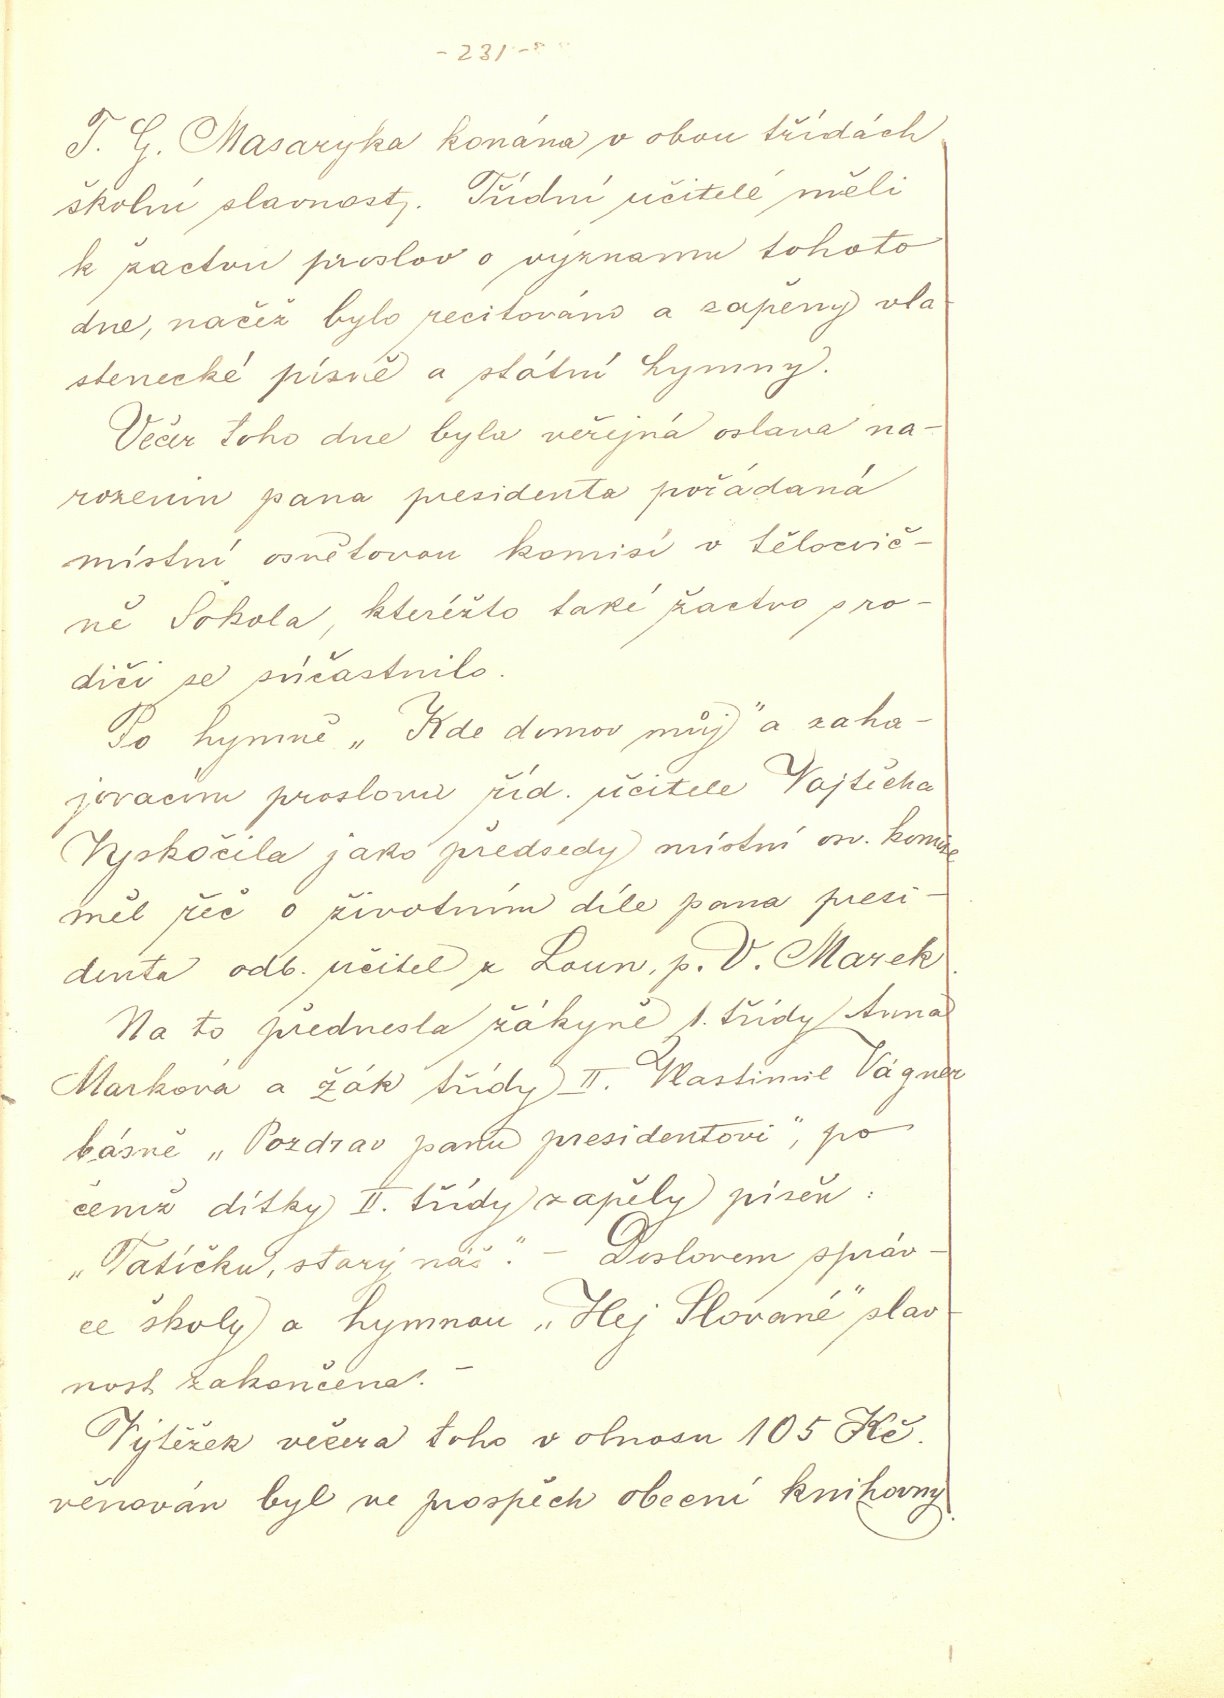 - 231 -
T. G. Masaryka konána v obou třídách
školní slavnost. Třídní učitelé měli
k žactvu proslov o významu tohoto
dne, načež bylo recitováno a zapěny vla-
stenecké písně a státní hymny.
Večer toho dne byla veřejná oslava na-
rozenin pana presidenta pořádaná
místní osvětovou komisí v tělocvič-
ně Sokola, kteréžto také žactvo s ro-
diči se súčastnilo.
Po hymně „Kde domov můj" a zaha-
jovacím proslovu říd. učitele Vojtěcha
Vyskočila jako předsedy místní osv. komise
měl řeč o životním díle pana presi-
denta odb. učitel z Loun, p. V. Marek.
Na to přednesla žákyně 1. třídy Anna
Marková a žák třídy II. Vlastimil Vágner
básně „Pozdrav panu presidentovi", po
čemž dítky II. třídy zapěly píseň:
„Tatíčku, starý náš." – Doslovem správ-
ce školy a hymnou „Hej Slované" slav-
nost zakončena. –
Výtěžek večera toho v obnosu 105 Kč.
věnován byl ve prospěch obecní knihovny.